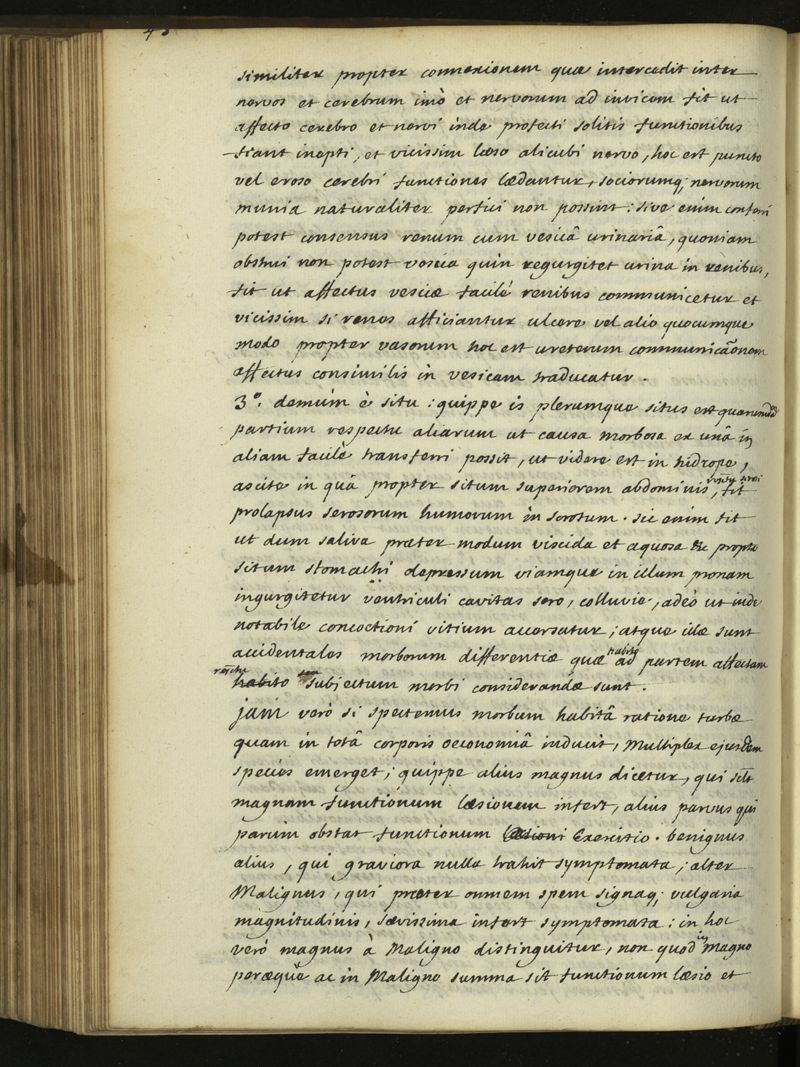 similiter propter connexionem quæ intercedit inter
nervos et cerebrum imò et nervorum ad invicem fit ut
affecto cerebro et nervi inde profecti solitis functionibus
fiant inepti, et vicissim læso alicubi nervo, hoc est puncto
vel eroso cerebri functiones lædantur, sociorumq; nervorum
munia naturaliter perfici non possint: sive enim conferri
potest consensus renum cum vesicâ urinariâ, quoniam
obstrui non potest vesica quin regurgitet urina in renibus,
fit ut affectus vesicæ facilè renibus communicetur et
vicissim si renes afficiantur ulcere vel alio quocumque
modo propter vasorum hoc est ureterum communicãonem
affectus consimilis in vesicam traducatur.
3º. demùm è situ: quippe is plerumque situs est quarumdã
partium respectu aliarum ut causa morbosa ex unâ in
aliam facilè transferri possit, ut videre est in hidrope,
ascite in quâ propter situm superiorem abdominis, fit
prolapsus serosorum humorum in scrotum. sic enim fit
ut dum saliva præter modum viscida et aquosa &c propter
situm stomachi depressum viamque in illum pronam
ingurgitetur ventriculi cavitas sero, colluvie, adeò ut inde
notabile concoctioni vitium accersatur; atque idæ sunt
accidentales morborum differentiæ quæ habitâ ad partem affectam
habito subjectum morbi considerandæ sunt.
jam verò si spectemus morbum habitâ ratione turbæ
quam in totâ corporis oeconomiâ inducit, Multiplex ejusdem
species emerget; quippe alius magnus dicetur, qui scilt
magnam functionum læsionem infert, alius parvus qui
parùm obstat functionum læsioni Exercitio. benignus
alius, qui graviora nulla trahit symptomata; alter
Malignus, qui præter omnem spem signaq; vulgaria
magnitudinis, sævissima infert symptomata: in hoc
verò magnus à Maligno distinguitur, non quod in magno
peræquè ac in Maligno summa sit functionum læsio et